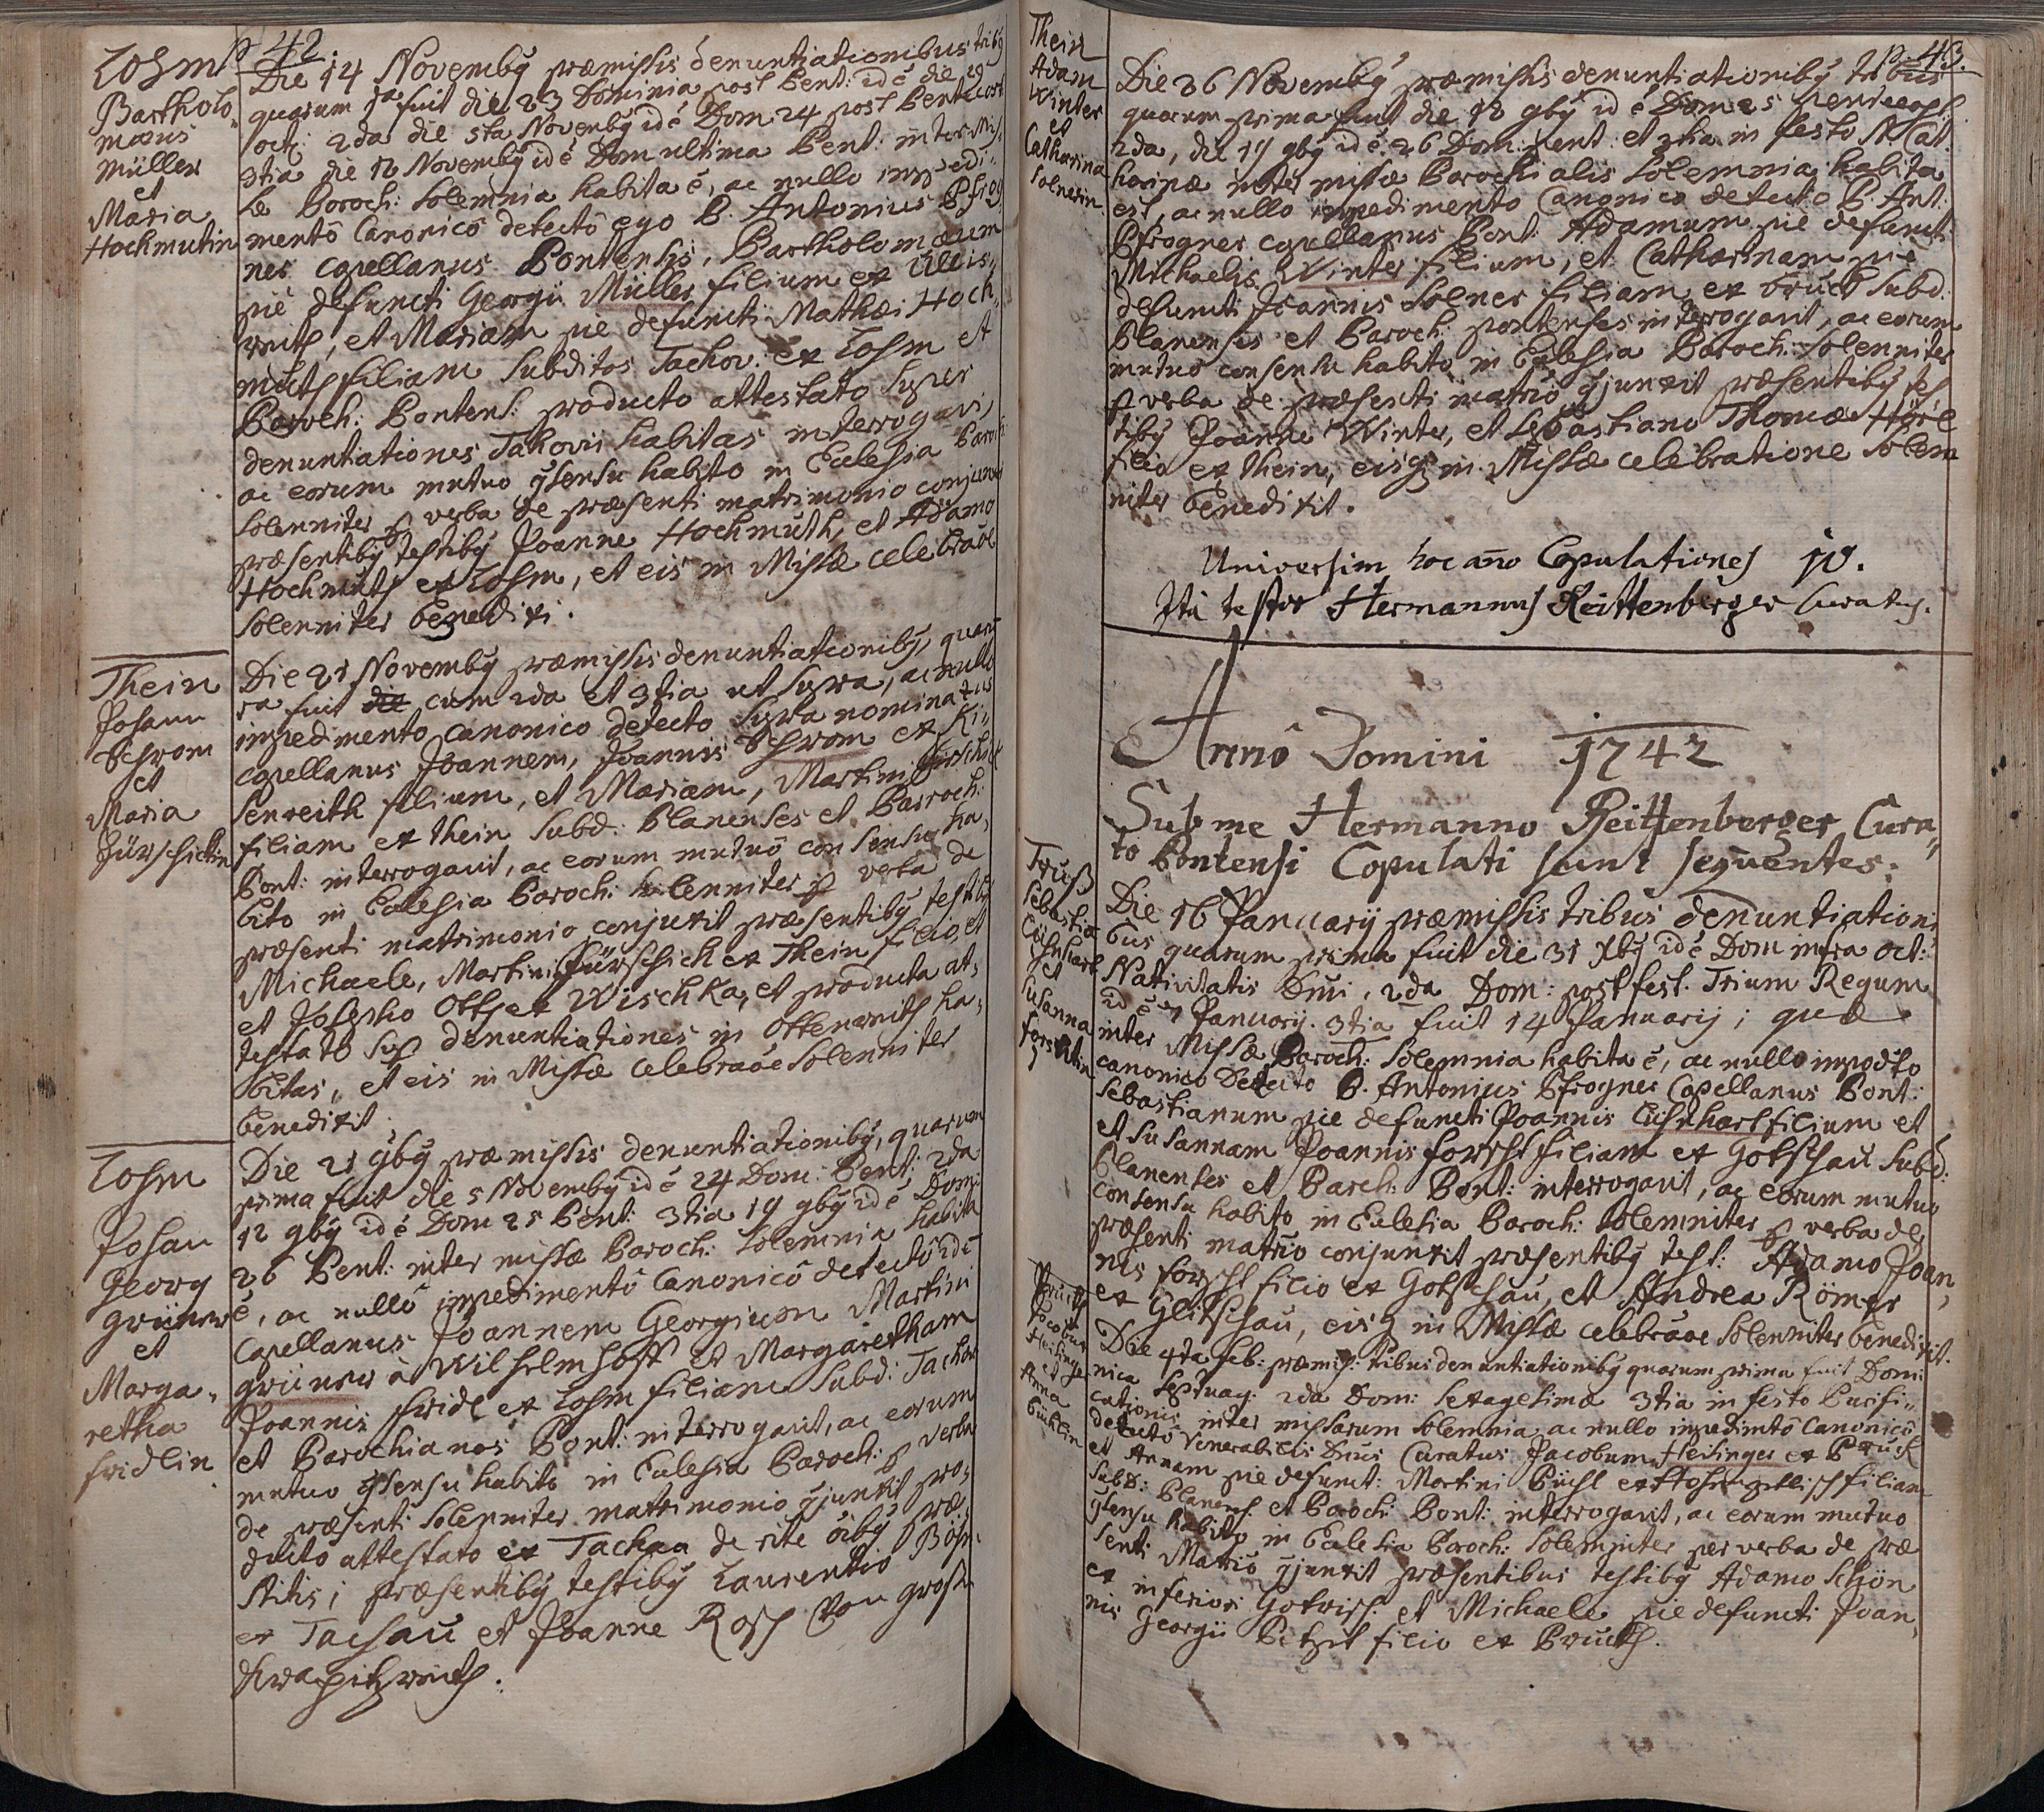 p 42
Losm
Bartholo„
mæus
Müller
et
Maria
Hochmutin
Die 14 Novembȳ præmissis denuntiationibus tribȳ
quarum 1a fuit die 23 Dominia post Pent: id ē die 29
octȳ 2da die 5ta Novembȳ id ē Dom 24 post Pentecost
3tia die 12 Novembȳ id ē Dom ultima Pent: inter Mis„
sæ Paroch: Solemnia habita ē, ac nullo impedi„
mentô Canonicô detectô ego P. Antonius Pfrog„
ner capellanus Pontensis, Bartholomæum
pie defuncti Georgii Müller filium ex Ullis„
reith, et Mariam pie defuncti Mathæi Hoch„
muth filiam Subditos Tachov: ex Losm et
Paroch: Pontens: producto attestato super
denuntiationes Tahovii habitas interrogavi,
ac eorum mutuo ɋsensu habito in Ecclesia Paroch:
Solenniter ꝑ verba de præsenti matrimonio conjunxi
præsentibȳ testibȳ Joanne Hochmuth, et Adamo
Hochmuth ex Losm, et eis in Missæ celebraōe
Solenniter benedixi.
Thein
Johann
Schrom
et
Maria
Fürschichtin
Die 21 Novembȳ præmissis denuntiationibȳ, quarū
1a fuit die cum 2da et 3tia ut supra, ac nullo
impedimento canonico detecto supra nominatus
capellanus Joannem, Joannis Schrom ex Ki„
senreith filium, et Mariam, Martini
filiam ex Thein Subd: Planenses et Parroch:
Pont: interrogavit, ac eorum mutuô consensu ha„
bito in Ecclesia Paroch: solenniter ꝑ verba de
præsenti matrimonio conjunxit præsentibȳ testibȳ
Michaele, Martini Fürschich ex Thein filio, et
et Josepho Ott ex Wischka, et producta at„
testato suꝑ denuntiationes in Ottenreith ha„
bitas, et eis in Missæ celebraōe Solenniter
benedixit.
Losm
Johan
Georg
Grüner
et
Marga„
retha
Fridlin
Die 21 9bȳ præmissis denuntiationibȳ, quarum
prima fuit die 5 Novembȳ id ē 24 Dom: Pent: 2da
12 9bȳ id ē Dom 25 Pent: 3tia 19 9bȳ id ē Dom:
26 Pent: inter missæ Paroch: Solemnia habita
ē, ac nullô impedimentô Canonicô detectô idē
Capellanus Joannem Georgium Martini
Grüner à Wilhelmhoff et Margaretham
Joannis Fridl ex Losm filiam Subd: Tachov
et Parochianos Pont: interrogavit, ac eorum
mutuo ɋsensu habito in Ecclesia Paroch: ꝑ verba
de præsenti Solenniter matrimonio ɋjunxit pro„
ducto attestato ex Tachaa de rite oībȳ præ„
stitis; præsentibȳ testibȳ Laurentio Böhm
ex Tachau et Joanne Rosch von Gross
Kra
p. 43.
Thein
Adam
Winter
et
Catharina
Solnerin
Die 26 Novembȳ præmissis denuntiationibȳ tribus
quarum prima fuit die 12 9bȳ id ē Dom 25 Pentecost:
2da, die 19 9bȳ id ē 26 Dom: Pent: et 3tia in festo S. Cat„
harinæ inter missæ Parochialis Solemnia habita
est, ac nullo impedimento Canonico detecto P. Ant:
Pfrogner capellanus Pont: Adamum pie defuncti
Michaelis Winter filium, et Catharinam pie
defuncti Joannis Solner filiam ex Bruck Subd:
Planenses et Paroch: Pontenses interrogavit, ac eorum
mutuo consensu habito in Ecclesia Paroch: Solenniter
ꝑ verba de præsenti matrīo ɋjunxit præsentibȳ tes„
tibȳ Joanne Winter, et Sebastiano Thomæ
filio ex Thein, eisɋ in Missæ celebratione Solem„
niter benedixit.
Universim hoc año Copulationes 10.
Ita testor Hermannus Reittenberger Curatus.
Annô Domini 1742
Sub me Hermanno Reittenberger Cura„
to Pontensi Copulati sunt sequentes:
Truss
Sebastia
Lischhart
et
Susanna
Forschtin
Die 16 Januarij præmissis tribus denuntiationi„
bus quarum prima fuit die 31 Xbȳ id ē Dom infra oct:
Nativitatis Dm̄i, 2da Dom: post fest. Trium Regum
id ē 7 Januarij. 3tia fuit 14 Januarij; quæ
inter Missæ Paroch: Solemnia habita ē, ac nullo impodto
canonico Detecto P. Antonius Pfrogner Capellanus Pont:
Sebastianum pie defuncti Joannis Lishhart filium et
et Susannam Joannis Forscht filiam ex Gotschau Subd:
Planenses et Paroch: Pont: interrogavit, ac eorum mutuo
consensu habito in Ecclesia Paroch: Solemniter ꝑ verba de
præsenti matrīo conjunxit præsentibȳ test: Adamo Joan„
nis Forscht filio ex Gotschau, et Andrea Römer
ex Glitschau, eisɋ in Missæ celebraōe Solenniter benedixit.
Bruckh
Jacobus
Heilinger
et
Anna
Pichlin
Die 4ta Feb: præmis: tribus denuntiationibȳ quarum prima fuit Domi„
nica Septuag: 2da Dom: Sexagesimæ 3tia in festo Purifi„
cationis inter missarum Solemnia, ac nullo impedimtô Canonicô
detectô Venerabilis Dn̄us Curatus Jacobum Heilinger ex Bruck
et Annam pie defunct: Martini Pichl ex filiam
Subd: Planens: et Paroch: Pont: interrogavit, ac eorum mutuo
ɋsensu habito in Ecclesia Paroch: Solemniter per verba de præ
senti Matrīo ɋjunxit præsentibus testibȳ Adamo Schön
ex inferiori Gotrisch: et Michaele pie defuncti Joan„
nis Georgii filio ex Bruckh.